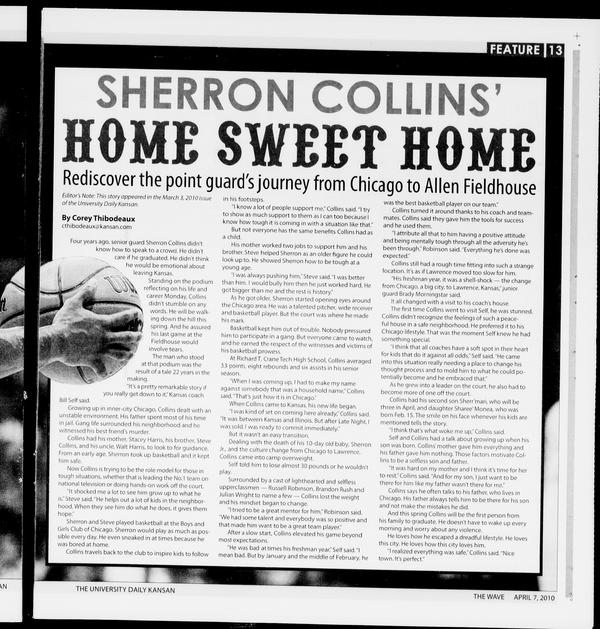 FEATURE 13
SHERRON COLLINS'
HOME SWEET HOME
Rediscover the point guard's journey from Chicago to Allen Fieldhouse
Editor's Note: This story appeared in the March 3, 2010 issue
of the University Daily Kansan.
By Corey Thibodeaux
cthibodeaux@kansan.com
Four years ago, senior guard Sherron Collins didn't
know how to speak to a crowd. He didn't
care if he graduated. He didn't think
he would be emotional about
leaving Kansas.
Standing on the podium
reflecting on his life and
career Monday, Collins
didn't stumble on any
words. He will be walk-
ing down the hill this
spring. And he assured
his last game at the
Fieldhouse would
involve tears.
The man who stood
at that podium was the
result of a tale 22 years in the
making.
"It's a pretty remarkable story if
you really get down to it," Kansas coach
Bill Self said.
Growing up in inner-city Chicago, Collins dealt with an
unstable environment. His father spent most of his time
in jail. Gang life surrounded his neighborhood and he
witnessed his best friend's murder.
Collins had his mother, Stacey Harris, his brother, Steve
Collins, and his uncle, Walt Harris, to look to for guidance.
From an early age, Sherron took up basketball and it kept
him safe.
Now Collins is trying to be the role model for those in
tough situations, whether that is leading the No.1 team on
national television or doing hands-on work off the court.
"It shocked me a lot to see him grow up to what he
is," Steve said. "He helps out a lot of kids in the neighbor-
hood. When they see him do what he does, it gives them
hope."
Sherron and Steve played basketball at the Boys and
Girls Club of Chicago. Sherron would play as much as pos-
sible every day. He even sneaked in at times because he
was bored at home.
Collins travels back to the club to inspire kids to follow
in his footsteps.
"I know a lot of people support me," Collins said. "I try
to show as much support to them as I can too because I
know how tough it is coming in with a situation like that."
But not everyone has the same benefits Collins had as
a child.
His mother worked two jobs to support him and his
brother. Steve helped Sherron as an older figure he could
look up to. He showed Sherron how to be tough at a
young age.
"I was always pushing him," Steve said. "I was better
than him. I would bully him then he just worked hard. He
got bigger than me and the rest is history."
As he got older, Sherron started opening eyes around
the Chicago area. He was a talented pitcher, wide receiver
and basketball player. But the court was where he made
his mark.
Basketball kept him out of trouble. Nobody pressured
him to participate in a gang. But everyone came to watch,
and he earned the respect of the witnesses and victims of
his basketball prowess.
At Richard T. Crane Tech High School, Collins averaged
33 points, eight rebounds and six assists in his senior
season.
"When I was coming up, I had to make my name
against somebody that was a household name," Collins
said. "That's just how it is in Chicago."
When Collins came to Kansas, his new life began.
"I was kind of set on coming here already," Collins said.
"It was between Kansas and Illinois. But after Late Night, I
was sold. I was ready to commit immediately."
But it wasn't an easy transition.
Dealing with the death of his 10-day old baby, Sherron
Jr., and the culture change from Chicago to Lawrence,
Collins came into camp overweight.
Self told him to lose almost 30 pounds or he wouldn't
play.
Surrounded by a cast of lighthearted and selfless
upperclassmen — Russell Robinson, Brandon Rush and
Julian Wright to name a few — Collins lost the weight
and his mindset began to change.
"I tried to be a great mentor for him," Robinson said.
"We had some talent and everybody was so positive and
that made him want to be a great team player."
After a slow start, Collins elevated his game beyond
most expectations.
"He was bad at times his freshman year," Self said. "I
mean bad. But by January and the middle of February, he
was the best basketball player on our team."
Collins turned it around thanks to his coach and team-
mates. Collins said they gave him the tools for success
and he used them.
"I attribute all that to him having a positive attitude
and being mentally tough through all the adversity he's
been through," Robinson said. "Everything he's done was
expected."
Collins still had a rough time fitting into such a strange
location. It's as if Lawrence moved too slow for him.
"His freshman year, it was a shell-shock — the change
from Chicago, a big city, to Lawrence, Kansas," junior
guard Brady Morningstar said.
It all changed with a visit to his coach's house.
The first time Collins went to visit Self, he was stunned.
Collins didn't recognize the feelings of such a peace-
ful house in a safe neighborhood. He preferred it to his
Chicago lifestyle. That was the moment Self knew he had
something special.
"I think that all coaches have a soft spot in their heart
for kids that do it against all odds," Self said. "He came
into this situation really needing a place to change his
thought process and to mold him to what he could po-
tentially become and he embraced that."
As he grew into a leader on the court, he also had to
become more of one off the court.
Collins had his second son Sherr'mari, who will be
three in April, and daughter Sharee' Monea, who was
born Feb. 15. The smile on his face whenever his kids are
mentioned tells the story.
"I think that's what woke me up," Collins said.
Self and Collins had a talk about growing up when his
son was born. Collins' mother gave him everything and
his father gave him nothing. Those factors motivate Col-
lins to be a selfless son and father.
"It was hard on my mother and I think it's time for her
to rest," Collins said. "And for my son, I just want to be
there for him like my father wasn't there for me."
Collins says he often talks to his father, who lives in
Chicago. His father always tells him to be there for his son
and not make the mistakes he did.
And this spring Collins will be the first person from
his family to graduate. He doesn't have to wake up every
morning and worry about any violence.
He loves how he escaped a dreadful lifestyle. He loves
this city. He loves how this city loves him.
"I realized everything was safe," Collins said. "Nice
town. It's perfect."
AN
THE UNIVERSITY DAILY KANSAN
THE WAVE APRIL 7, 2010